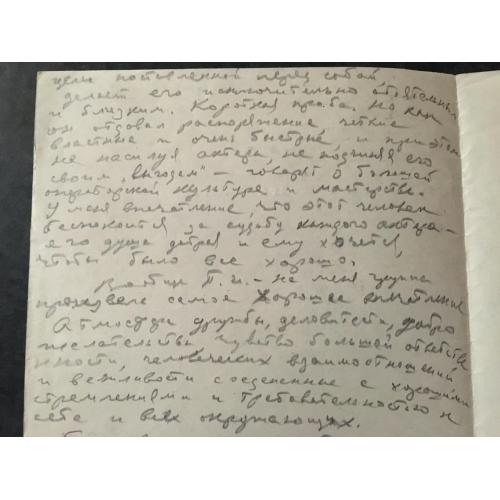 цели поставленной перед собой,
делает его исключительно обаятельным
и близким. Короткая проба, но как
он отдавал распоряжение четкие
властные и очень быстрые, и при этом
не насилуя актера, не подчиняя его
своим „выгодам" – говорят о большой
операторской культуре и мастерстве.
У меня впечатление, что этот человек
беспокоится за судьбу каждого актера –
его душа добрая и ему хочется,
чтобы было все хорошо.
П. и. – на меня группа
произвела самое хорошее впечатление
Атмосфера дружбы, деловитости, добро
желательства чувство большой ответстве
нности, человеческих взаимоотношений
и вежливости соединенные с хорошими
стремлениями и требовательностью к
себе и всех окружающих.